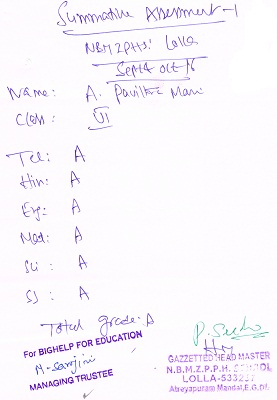 Summative Assessment-1
NBMZPHS' Lolla
Sept & Oct 16
Name: A. Pavithra Mani
Class: VI
Tel: A
Hin: A
Eng: A
Mat: A
Sci: A
SS: A
Total grade - A
For BIGHELP FOR EDUCATION
M. Sarojini
MANAGING TRUSTEE
HM
GAZZETTED HEAD MASTER
N.B.M.Z.P.P.H. SCHOOL
LOLLA-533237
Atreyapuram Mandal, E.G.Dt.